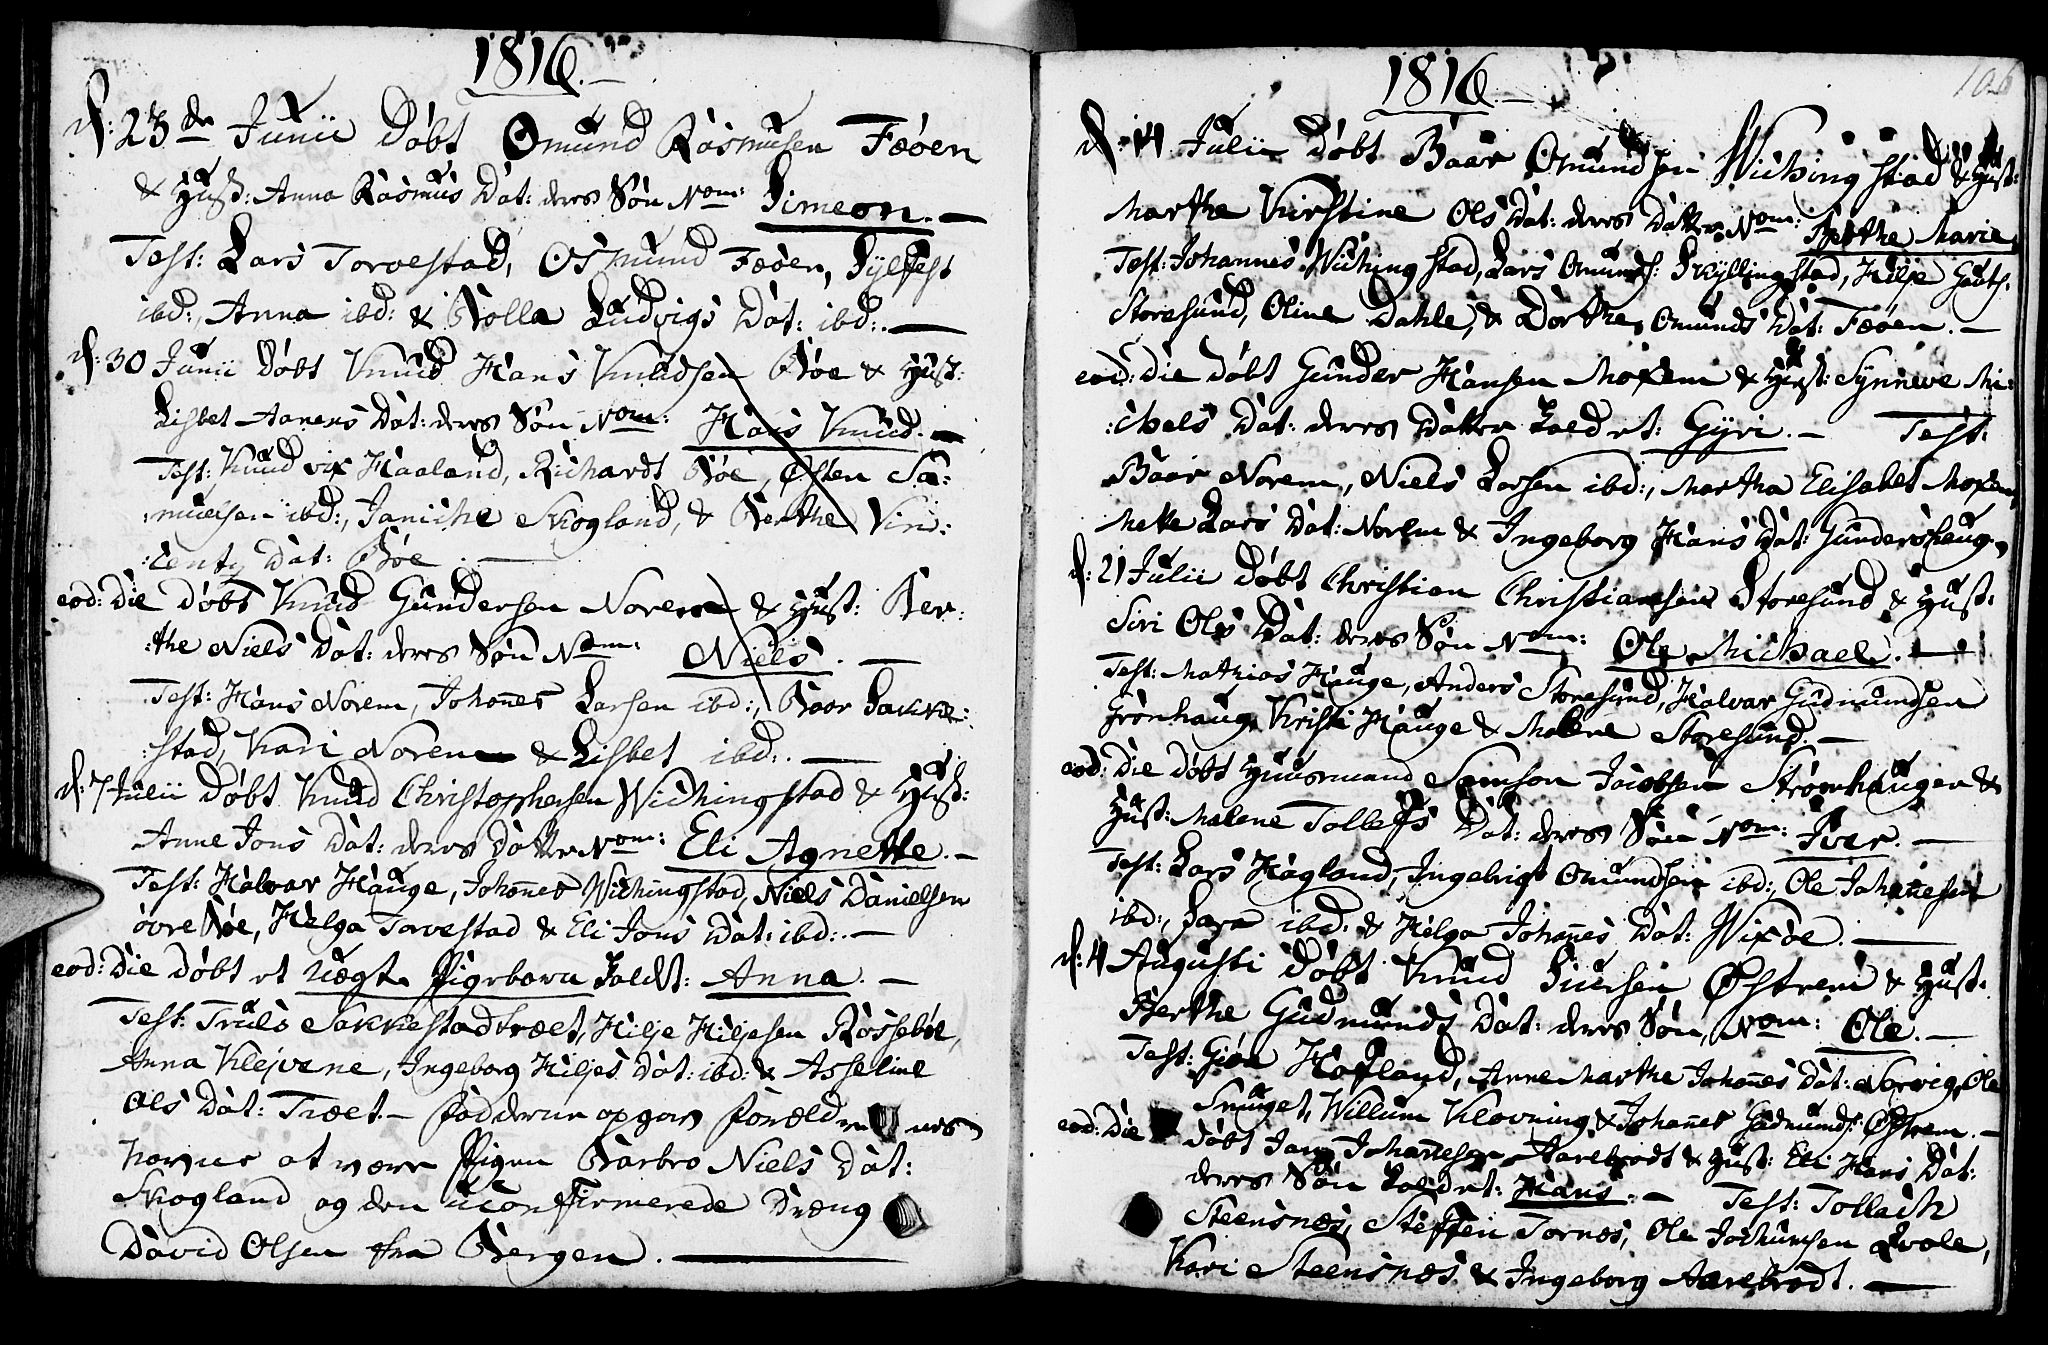 1816.
d: 23de Junii Døbt Omund Rasmusen Feøen
& Hust: Anna Rasmus Dat: deres Søn Nom: Simeon.
Test: Lars Torvestad, Osmund Feøen, Sylfest
ibd:, Anna ibd: & Bolla Ludvigs Dat: ibd:.
d: 30 Junii Døbt Knud Hans Knudsen Bøe & Hust:
Lisbet Aanens Dat: deres Søn Nom: Hans Knud.
Test: Knud Haaland, Richardt Bøe, Østen Sa:
:muelsen ibd:, Janiche Skogland, & Berthe Vin:
:centz Dat: Bøe
eod: Die Døbt Knud Gundersen Norem & Hust: Ber:
:the Niels Dat: deres Søn Nom: Niels.
Test: Hans Norem, Johannes Larsen ibd:, Baar Sakke:
:stad, Kari Norem & Lisbet ibd:.
d: 7 Julii Døbt Knud Christophersen Wichingstad & Hust:
Anne Jons Dat: deres Datter Nom: Eli Agnette.
Test: Halvar Hauge, Johannes Wichingstad, Niels Danielsen
øvre Bøe, Helga Torvestad & Eli Jons Dat: ibd:.
eod: Die Døbt et uægte Pigebarn kaldt: Anna.
Test: Truls Sakkestadtræet, Hilje Hiljesen Røssebøe,
Anna Klejvene, Ingeborg Hiljes Dat: ibd: & Asseline
Ols Dat: Træet. Fadderne opgav Forældrenes
Navne at være Pigen Barbro Niels Dat:
Skogland og den uconfirmerede Dreng
David Olsen fra Bergen.
1816
106
d: 14 Julii Døbt Baar Omundsen Wichingstad & Hust:
Marthe Kirstine Ols Dat: deres Datter Nom: Berthe Marie.
Test: Johannes Wichingstad, Lars Omunds: Skyllingstad, Hilje Gauts.
Storesund, Oline Dahle, & Dorthe Omunds Dat: Feøen.
eod: Die Døbt Gunder Hansen Moxem & Hust: Synneve Mi:
:chels Dat: deres Datter kaldet: Gyri. Test:
Baar Norem, Niels Larsen ibd:, Martha Elisabet Moxem,
Mette Lars Dat: Norem & Ingeborg Hans Dat: Gundershaug.
d: 21 Julii Døbt Christian Christiansen Storesund & Hust:
Siri Ols Dat: deres Søn Nom: Ole Michael.
Test: Mathias Hauge, Anders Storesund, Halvar Gudmundsen
Grønhaug, Kristi Hauge & Malene Storesund.
eod: Die Døbt Huusmand Samson Jacobsen Strømhaugen &
Hust: Malene Tollefs Dat: deres Søn Nom: Iver.
Test: Lars Hagland, Ingebrigt Omundsen ibd:, Ole Johannesen
ibd:, Sara ibd: & Helga Johannes Dat: Wixøe.
d: 4 Augusti Døbt Knud Siversen Østrem & Hust:
Berthe Gudmunds Dat: deres Søn, Nom: Ole.
Test: Gjøe Hafland, Anne Marthe Johannes Dat: Norvig, Ole
Snuget, Willum Klovning & Johannes Gudmunds: Østrem.
eod: Die Døbt Johannesen Aarebrodt & Hust: Eli Hans Dat:
deres Søn kaldet: Hans. Test: Tollach
Steensnes, Steffen Tornes, Ole Jochumsen Qvale,
Kari Steensnes & Ingeborg Aarebrodt.